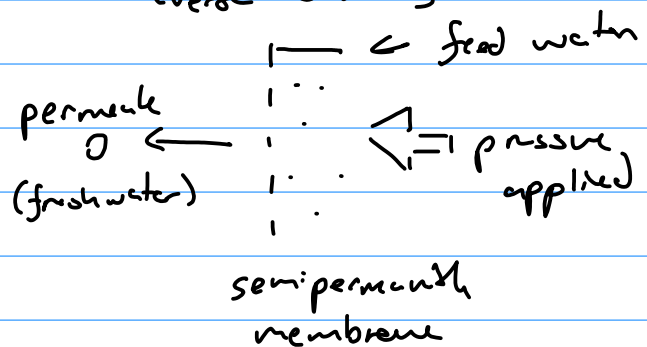 feed water
permeate
(freshwater)
pressure
applied
semipermeable
membrane